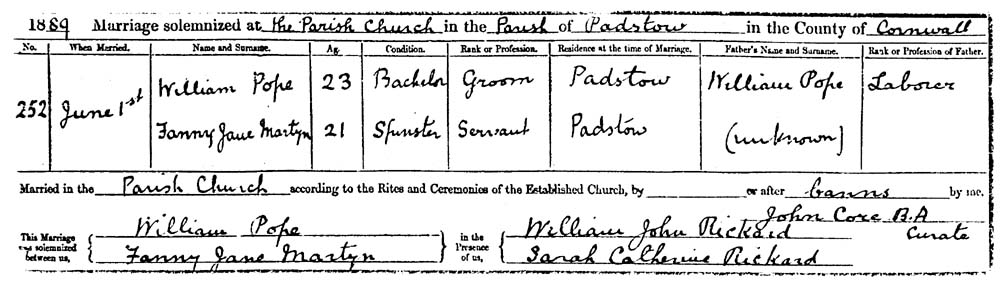 1889 Marriage solemnized at the Parish Church in the Parish of Padstow in the County of Cornwall
No. When Married. Name and Surname. Ag. Condition. Rank or Profession. Residence at the time of Marriage. Father's Name and Surname. Rank or Profession of Father.
252 June 1st William Pope 23 Bachelor Groom Padstow William Pope Laborer
Fanny Jane Martyn 21 Spinster Servant Padstow (unknown)
Married in the Parish Church according to the Rites and Ceremonies of the Established Church, by or after banns by me,
John Core B.A
Curate
This Marriage was solemnized between us, William Pope in the Presence of us, William John Rickard
Fanny Jane Martyn Sarah Catherine Rickard